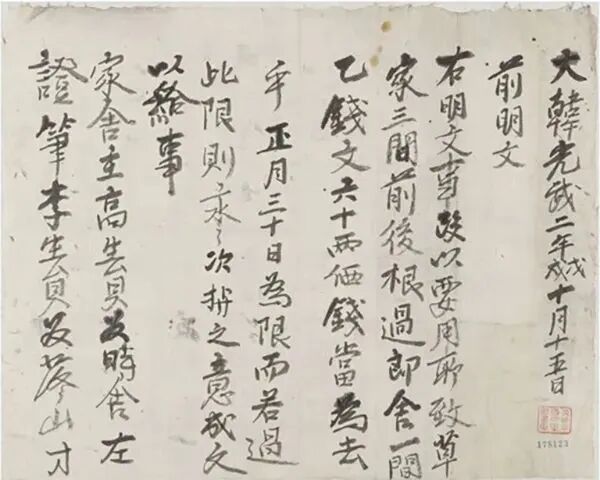 大韓光武二年戊戌十月十五日
前明文
右明文事段以要用所致草
家三間前後根過即舍一間
乙錢文六十兩価錢當為去
乎正月三十日為限而若過
此限則永々次持之意成文
以給事
家舍主高生員奴時舍左
證筆李生員奴山寸
178123